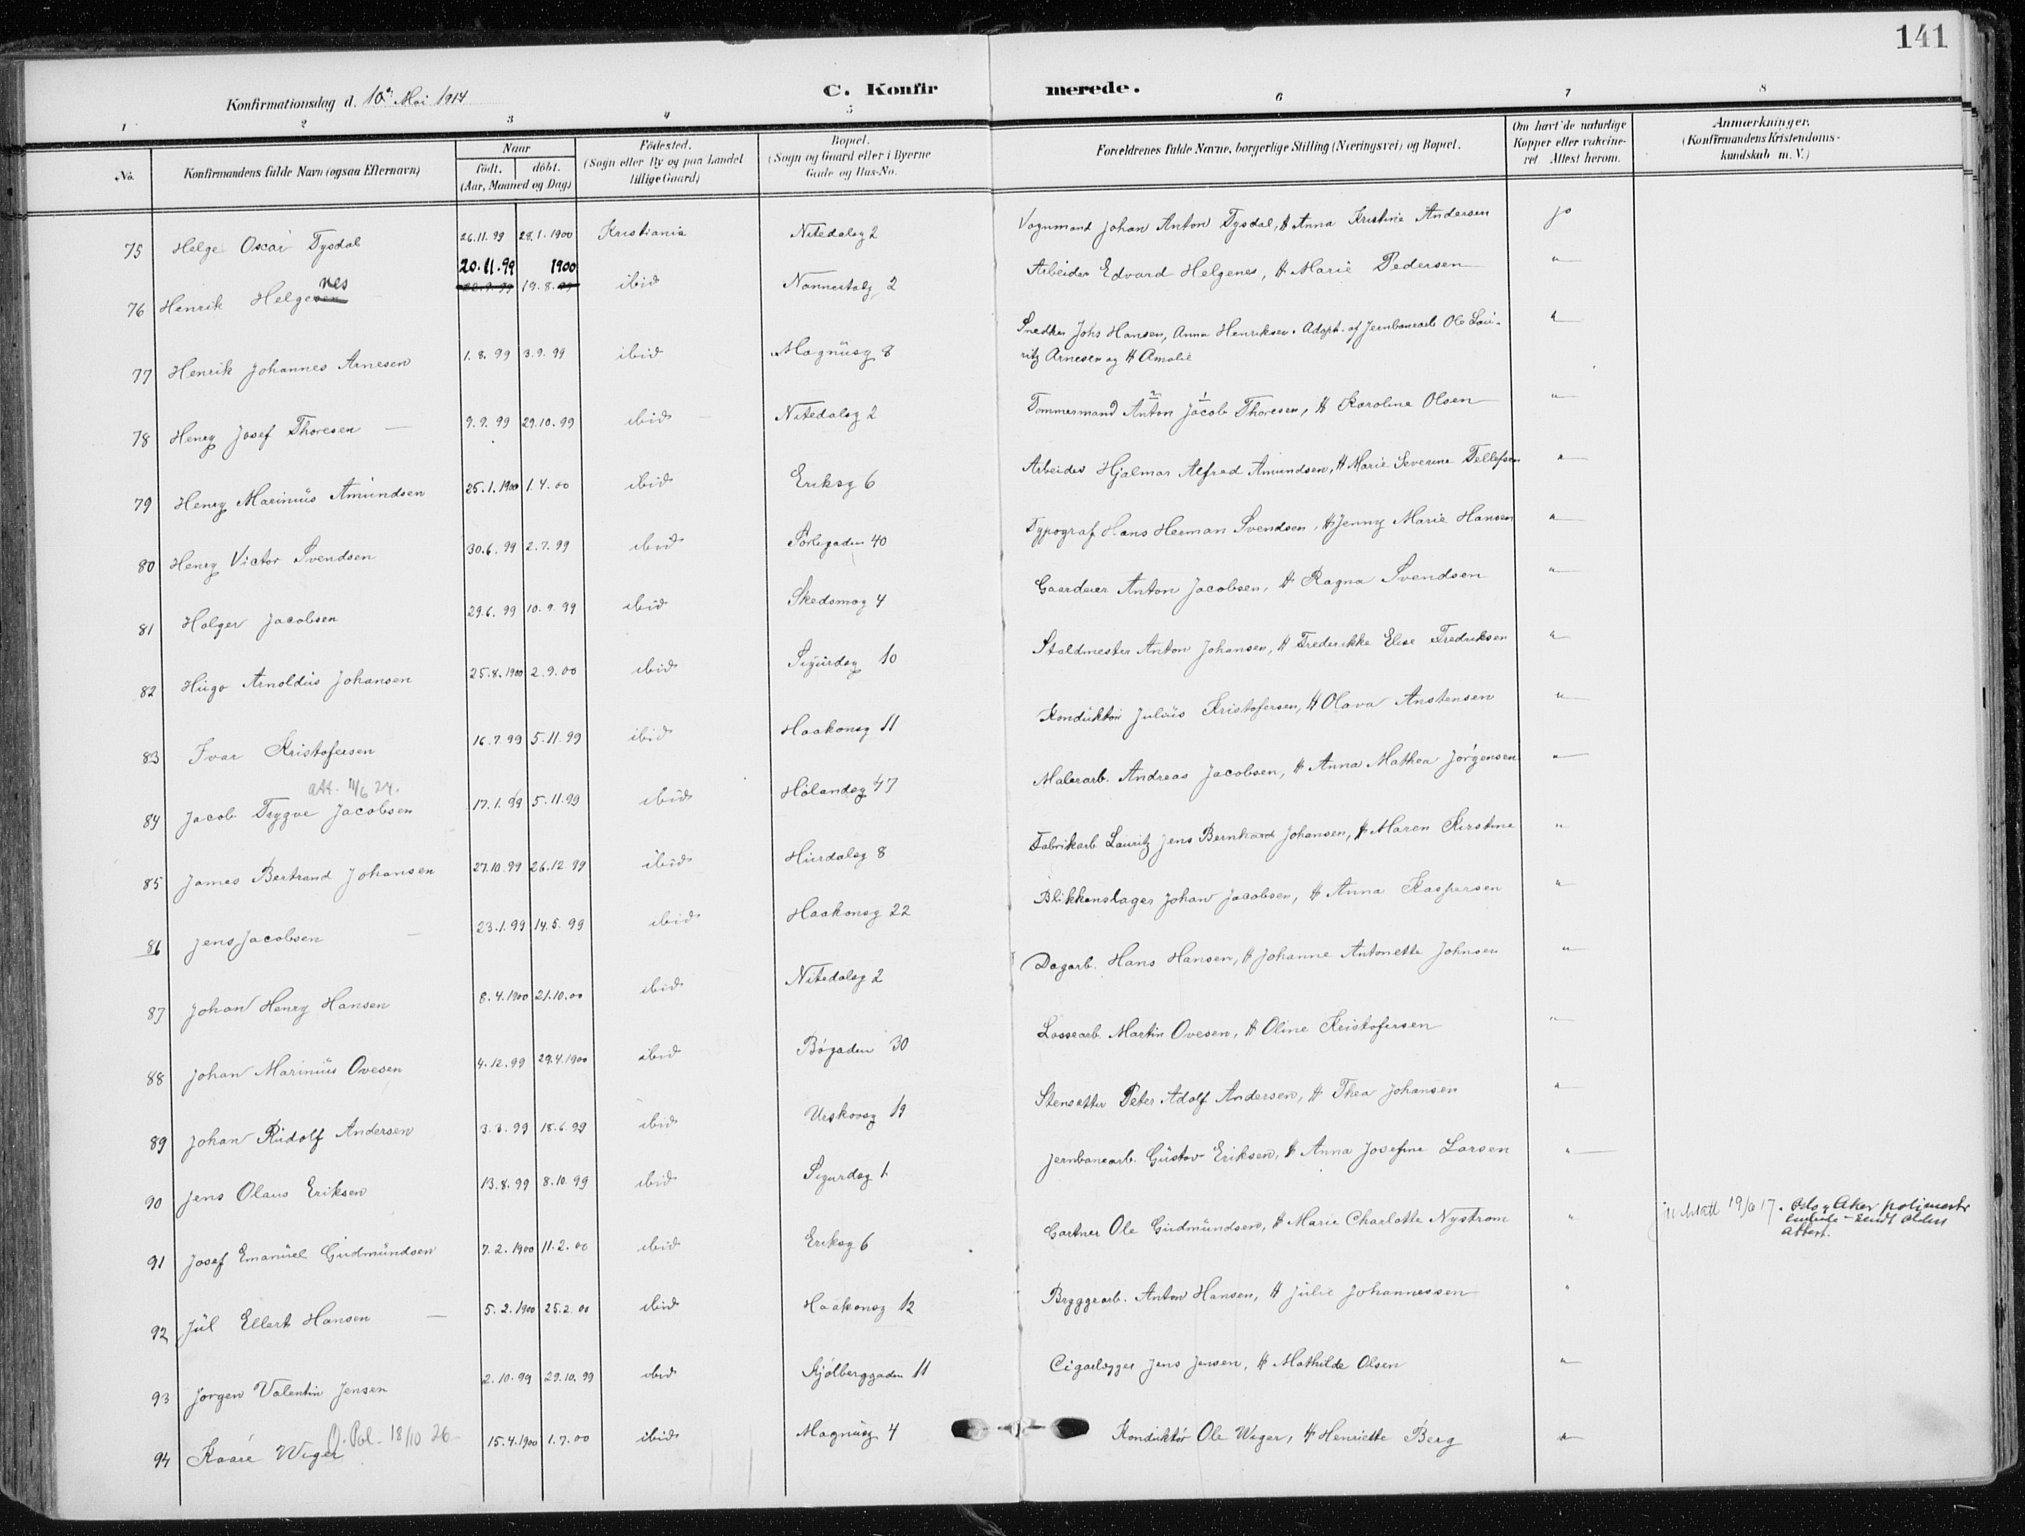 141
Konfirmationsdag d. 10de Mai 1914 C. Konfirmerede.
1 2 3 4 5 6 7 8
No. Konfirmandens fulde Navn (ogsaa Efternavn) Naar født. døbt. (Aar, Maaned og Dag) Fødested. (Sogn eller By og paa Landet tillige Gaard) Bopæl. (Sogn og Gaard eller i Byerne Gade og Hus-No. Forældrenes fulde Navne, borgerlige Stilling (Næringsvei) og Bopæl. Om havt de naturlige Kopper eller vakcineret Attest herom. Anmærkninger. (Konfirmandens Kristendomskundskab m. V.)
75 Helge Oscar Tysdal 26.11.99 28.1.1900 Kristiania Nitedalsg 2 Vognmand Johan Anton Tysdal, H Anna Kristine Andersen jo
20.11.99 1900
76 Henrik Helgenes 19.8. ibid Nannestadg 2 Arbeider Edvard Helgenes, H Marie Pedersen "
77 Henrik Johannes Arnesen 1.8.99 3.9.99 ibid Magnusg 8 Snedker Johs Hansen, Anna Henriksen. Adopt. af Jernbanearb Ole Lau-
ritz Arnesen og H Amalie "
78 Henry Josef Thoresen 9.9.99 29.10.99 ibid Nitedalsg 2 Tømmermand Anton Jacob Thoresen, H Karoline Olsen "
79 Henry Marinius Amundsen 25.1.1900 1.4.00 ibid Eriksg 6 Arbeider Hjalmar Alfred Amundsen, H Marie Severine Tellefsen "
80 Henry Victor Svendsen 30.6.99 2.7.99 ibid Sørligaden 40 Typograf Hans Herman Svendsen, H Jenny Marie Hansen "
81 Holger Jacobsen 29.6.99 10.9.99 ibid Skedsmog 4 Gaardeier Anton Jacobsen, H Ragna Svendsen "
82 Hugo Arnoldus Johansen 25.8.1900 2.9.00 ibid Sigurdsg 10 Staldmester Anton Johansen, H Frederikke Elise Fredriksen "
83 Ivar Kristofersen 16.7.99 5.11.99 ibid Haakonsg 11 Konduktør Julius Kristofersen, H Olava Anstensen "
att. 11/6 24.
84 Jacob Trygve Jacobsen 17.1.99 5.11.99 ibid Hølandsg 47 Malerarb. Andreas Jacobsen, H Anna Mathea Jørgensen "
85 James Bertrand Johansen 27.10.99 26.12.99 ibid Hurdalsg 8 Fabrikarb Lauritz Jens Bernhard Johansen, H Maren Kirstine "
86 Jens Jacobsen 23.1.99 14.5.99 ibid Haakonsg 22 Blikkenslager Johan Jacobsen, H Anna Kaspersen "
87 Johan Henry Hansen 8.4.1900 21.10.00 ibid Nitedalsg 2 Dagarb. Hans Hansen, H Johanne Antonette Johnsen "
88 Johan Marinius Ovesen 4.12.99 29.4.1900 ibid Bøgaden 30 Lossearb. Martin Ovesen, H Oline Kristofersen "
89 Johan Rudolf Andersen 3.3.99 18.6.99 ibid Urskovsg 19 Stensetter Peter Adolf Andersen, H Thea Johansen "
90 Jens Olaus Eriksen 13.8.99 8.10.99 ibid Sigurdsg 1 Jernbanearb. Gustav Eriksen, H Anna Josefine Larsen "
91 Josef Emanuel Gudmundsen 7.2.1900 11.2.00 ibid Eriksg 6 Gartner Ole Gudmundsen, H Marie Charlotte Nystrøm " 19/6 17. Oslo & Aker politimestr
attest.
92 Jul Ellert Hansen 5.2.1900 25.2.00 ibid Haakonsg 12 Bryggearb. Anton Hansen, H Julie Johannessen "
93 Jørgen Valentin Jensen 2.10.99 29.10.99 ibid Kjølberggaden 11 Cigarlægger Jens Jensen, H Mathilde Olsen "
O. Pol. 18/10 26
94 Kaare Wiger 15.4.1900 1.7.00 ibid Magnusg 4 Konduktør Ole Wiger, H Henriette Berg "